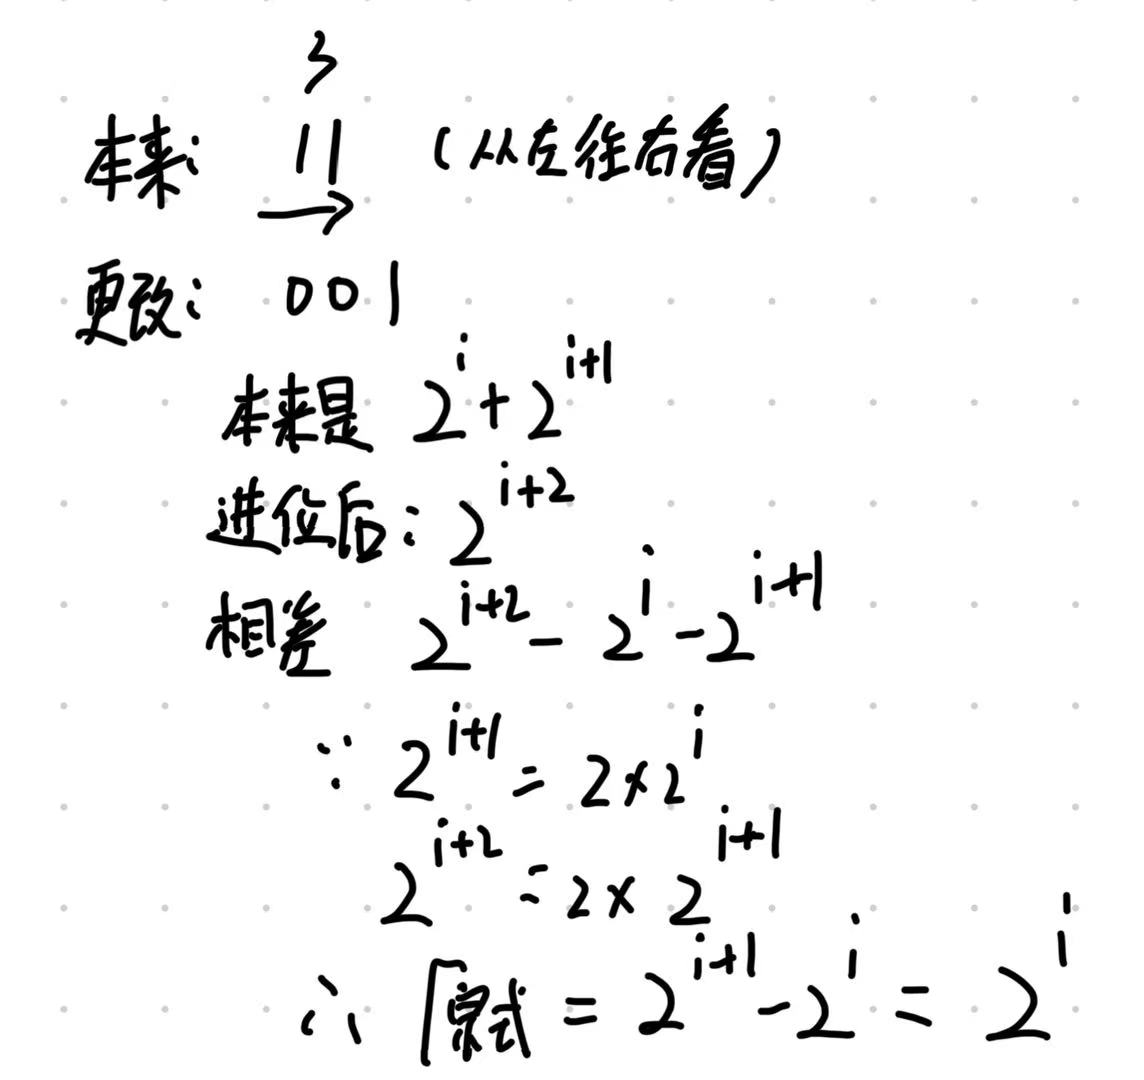 3
本来: 11 (从左往右看)
→
更改: 001
本来是 2^i + 2^{i+1}
进位后: 2^{i+2}
相差 2^{i+2} - 2^i - 2^{i+1}
∵ 2^{i+1} = 2×2^i
2^{i+2} = 2×2^{i+1}
∴ 原式 = 2^{i+1} - 2^i = 2^i